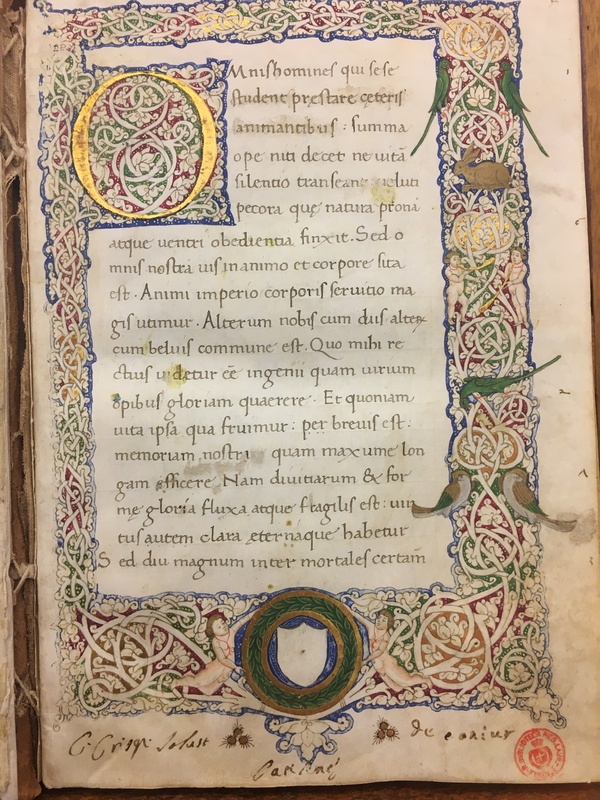 OMnis homines qui sese
student prestare ceteris
animantibus : summa
ope niti decet ne uitā
silentio transeant ueluti
pecora quę natura prona
atque uentri obedientia finxit. Sed o
mnis nostra uis in animo et corpore sita
est. Animi imperio corporis seruitio ma
gis utimur. Alterum nobis cum diis alterꝝ
cum beluis commune est. Quo mihi re
ctius uidetur eē ingenii quam uirium
opibus gloriam quaerere. Et quoniam
uita ipsa qua fruimur : per breuis est :
memoriam nostri quam maxume lon
gam efficere. Nam diuitiarum & for
mę gloria fluxa atque fragilis est : uir
tus autem clara ęternaque habetur
Sed diu magnum inter mortales certam̄
C. Crispi Salust de coniur
Catilinę
BIBLIOTECA